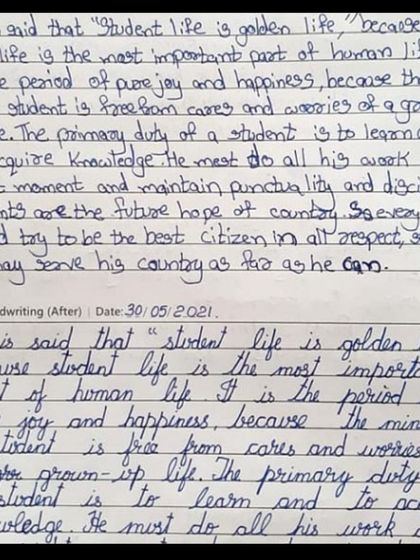 said that "Student life is golden life," because
life is the most important part of human li
e period of pure joy and happiness, because th
student is free from cares and worries of a g
e. The primary duty of a student is to learn a
cquire knowledge. He mest do all his work
t moment and maintain punctuality and disci
nts are the future hope of country. So every
d try to be the best citizen in all respect, s
ay serve his country as far as he can.
dwriting (After) | Date: 30/05/2021.
is said that "student life is golden
use student life is the most importa
t of human life. It is the period
joy and happiness, because the min
tudent is free from cares and worries
grown-up life. The primary duty
student is to learn and to ac
wledge. He must do, all his work